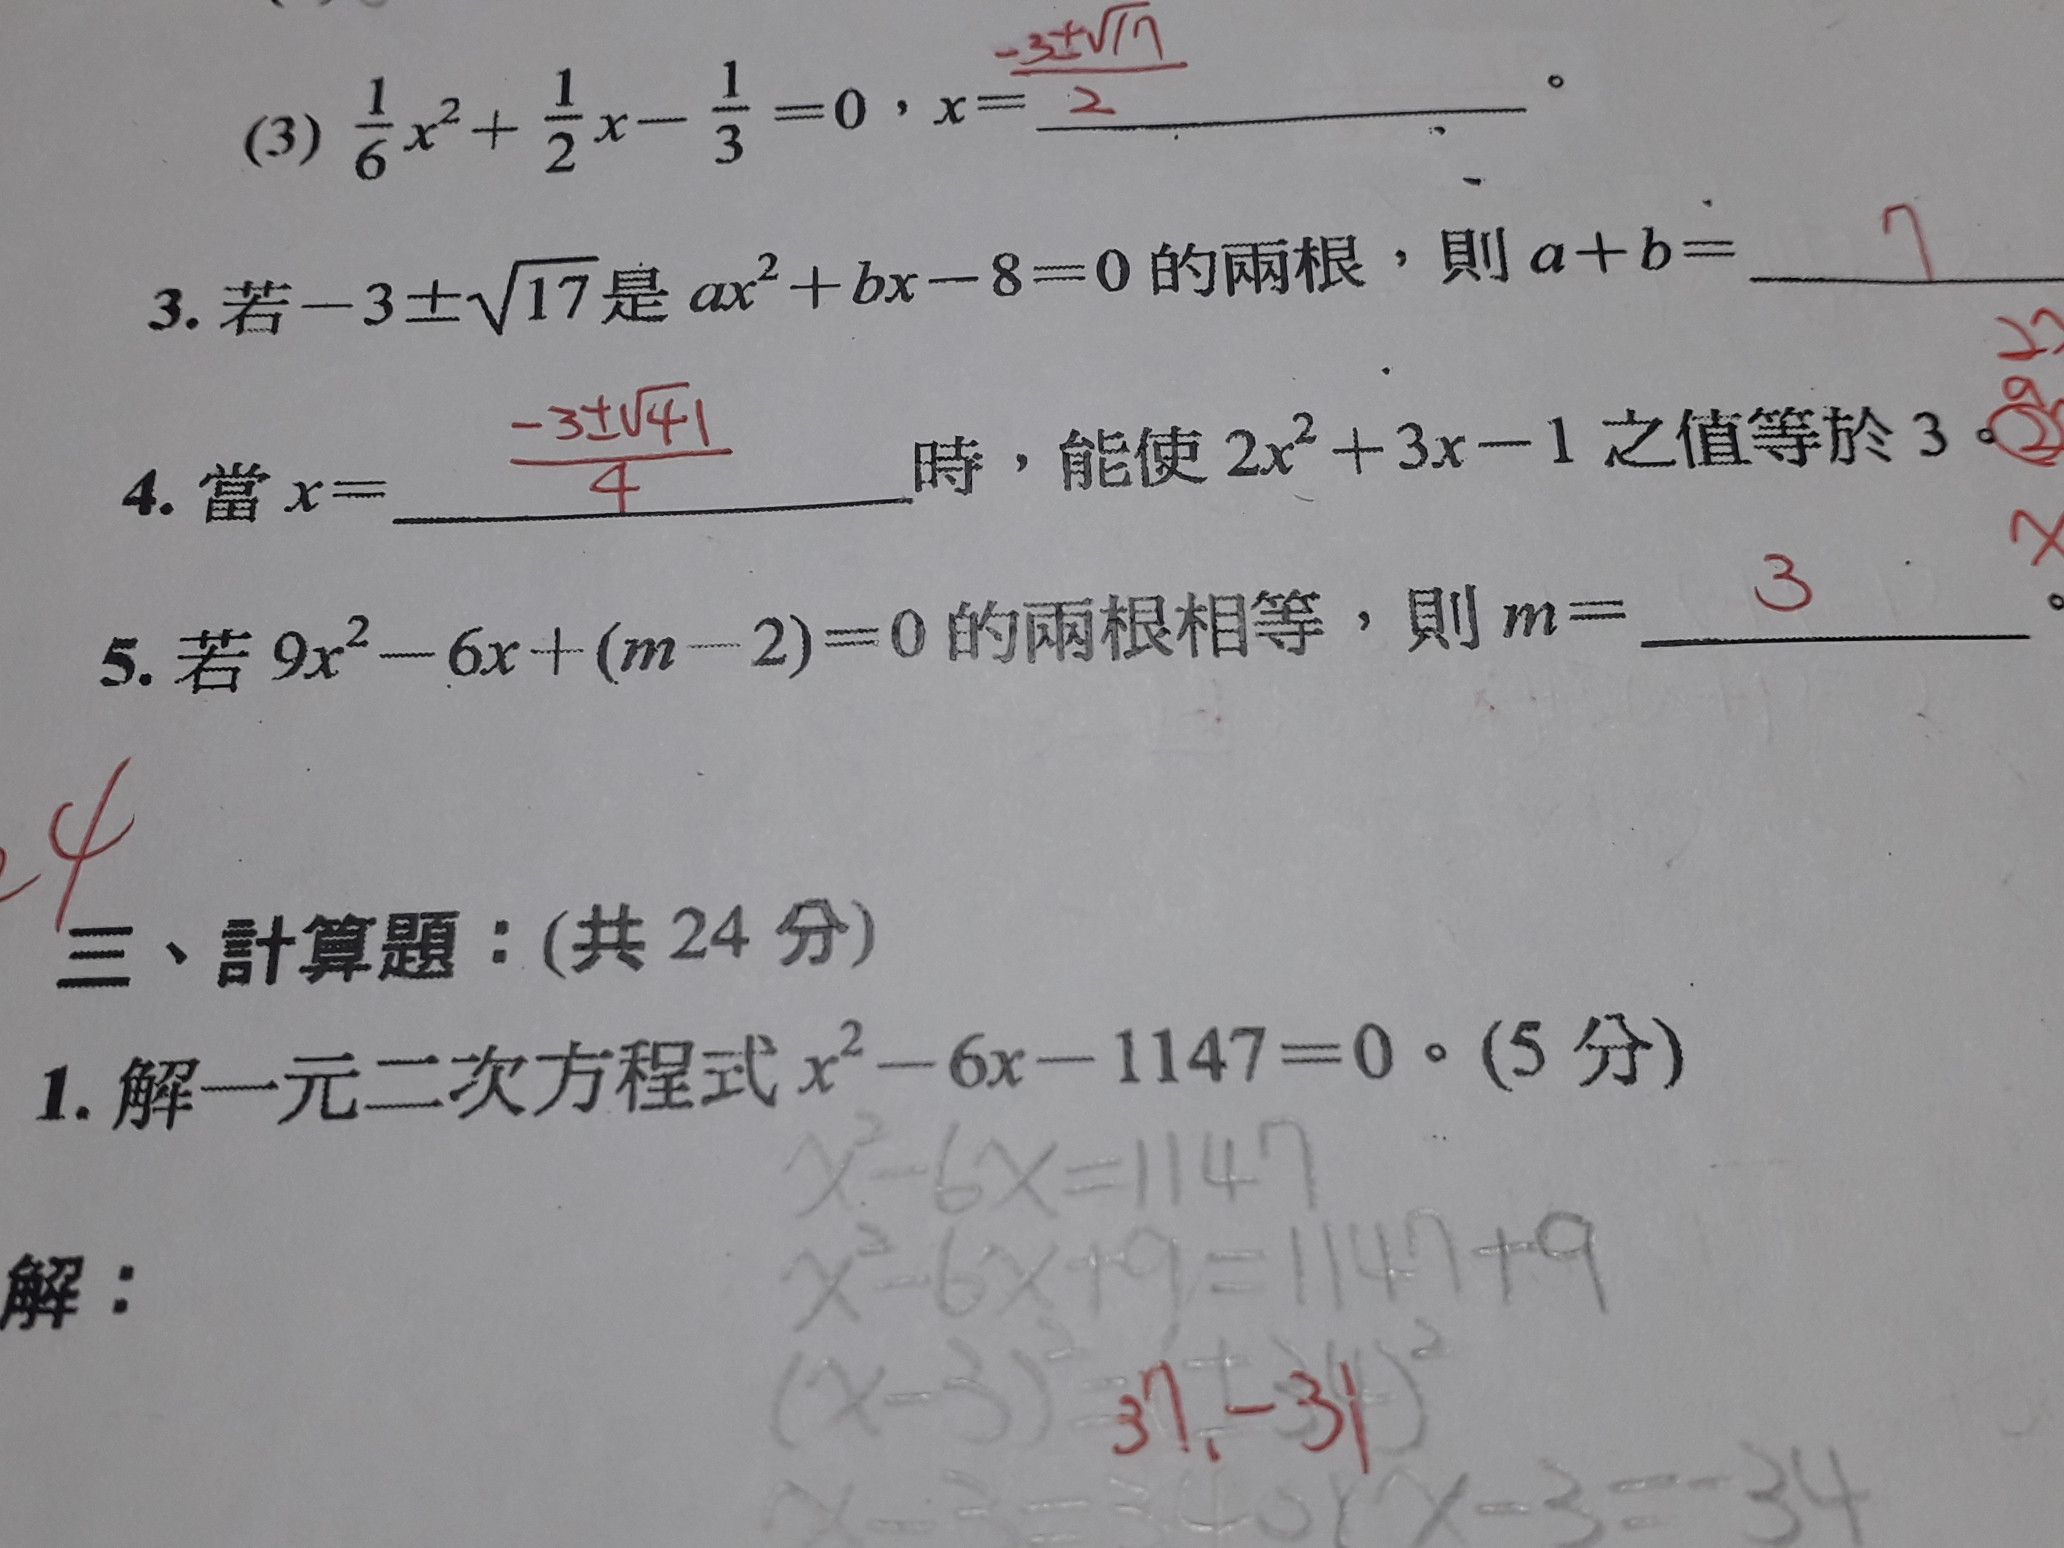 (3) 1/6 x² + 1/2 x − 1/3 = 0，x = (-3±√17)/2 。
3. 若 −3±√17 是 ax²+bx−8=0 的兩根，則 a+b= 7
4. 當 x= (-3±√41)/4 時，能使 2x²+3x−1 之值等於 3。
5. 若 9x²−6x+(m−2)=0 的兩根相等，則 m= 3 。
三、計算題：(共 24 分)
1. 解一元二次方程式 x²−6x−1147=0。(5 分)
x²-6x=1147
解：
x²-6x+9=1147+9
(x-3)²=(±34)²
37, -31
x-3=34 or x-3=-34